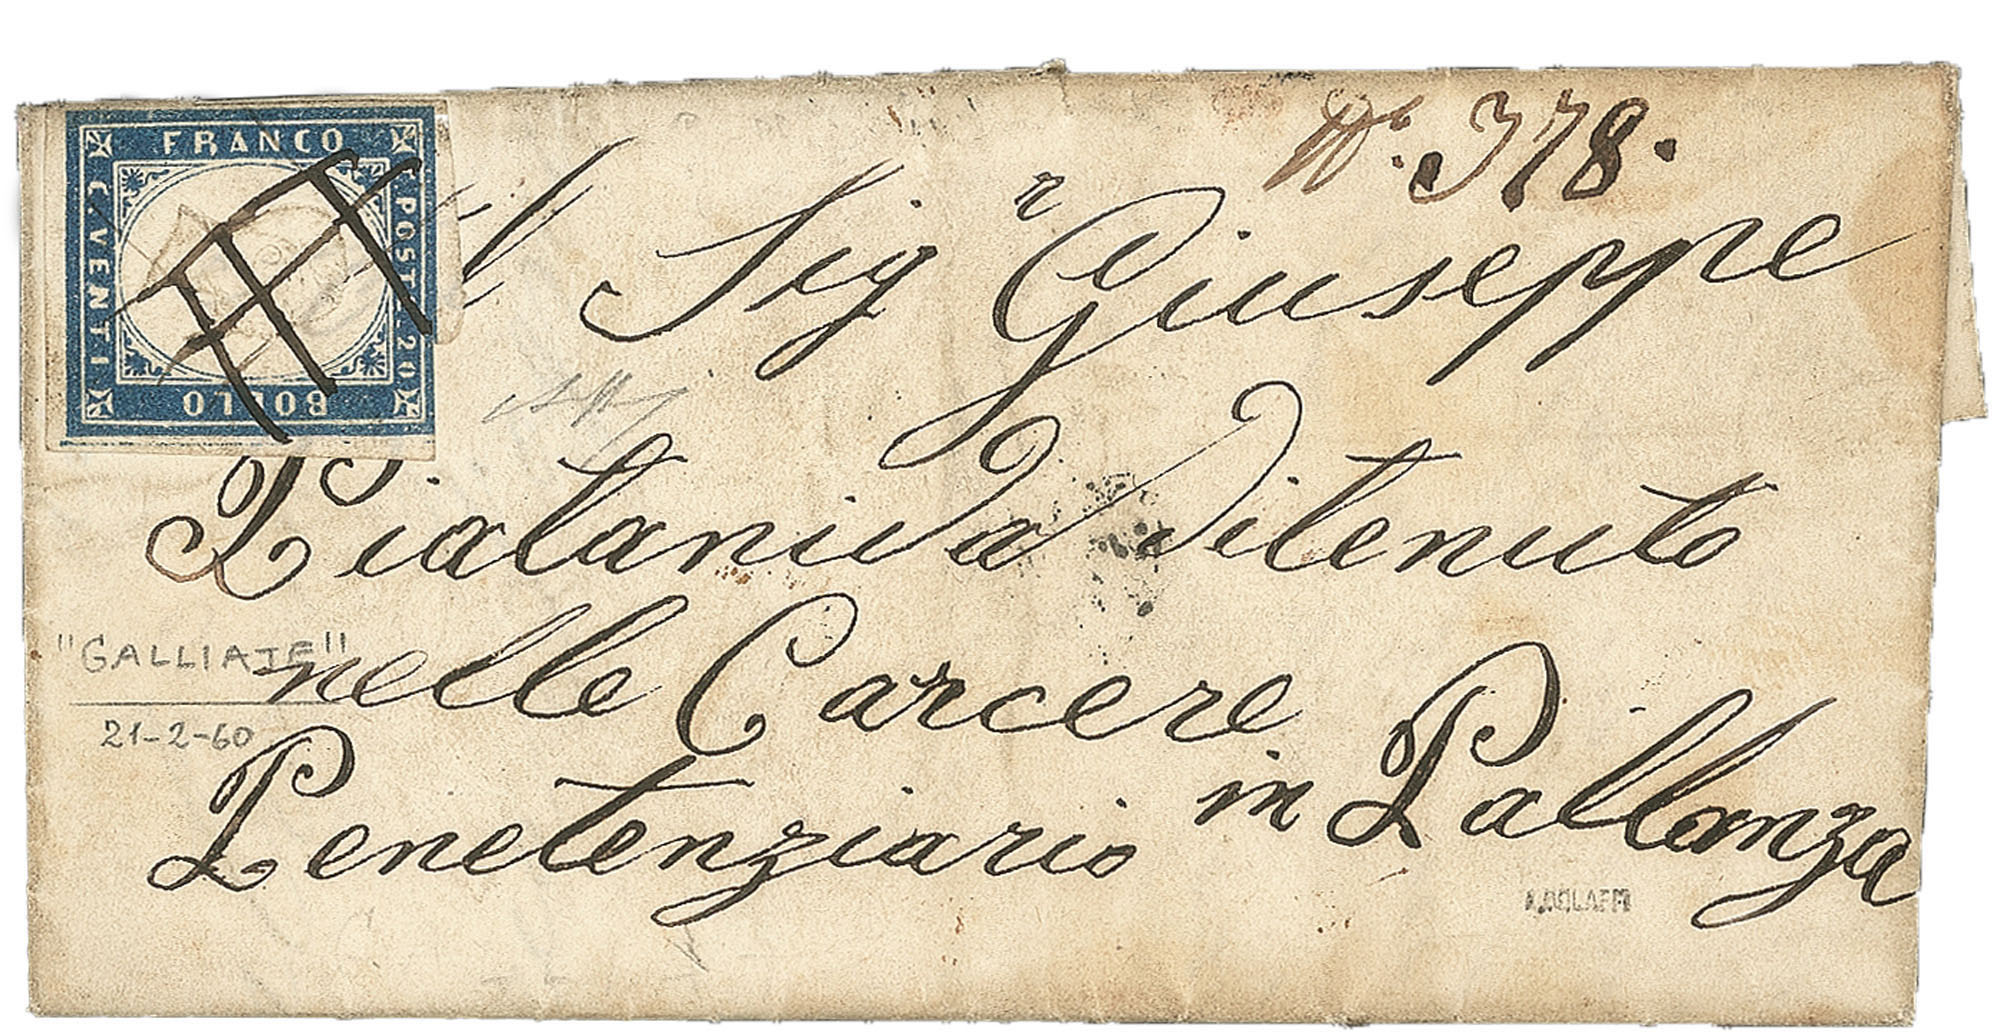 FRANCO
C. VENTI
POST. 20
BOLLO
N.º 378.
Al Sig.r Giuseppe
Piatanida Ditenuto
nelle Carcere
Penetenziario in Pallanza
"GALLIATE"
21-2-60
A. BOLAFFI